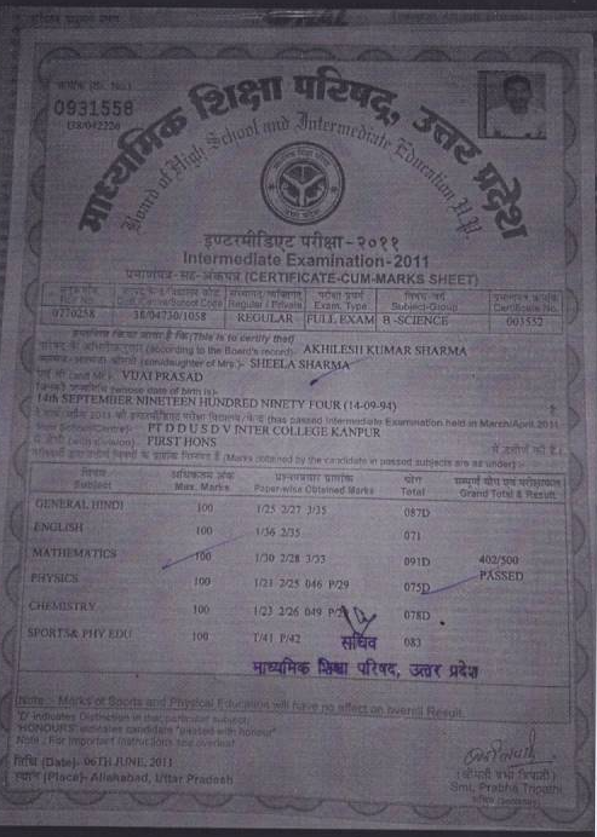 0931558
माध्यमिक शिक्षा परिषद्, उत्तर प्रदेश
Board of High School and Intermediate Education U.P.
इण्टरमीडिएट परीक्षा-२०११
Intermediate Examination-2011
प्रमाणपत्र-सह-अंकपत्र (CERTIFICATE-CUM-MARKS SHEET)
Regular / Private Exam. Type Subject-Group Certificate No.
0770258 38/04730/1058 REGULAR FULL EXAM B -SCIENCE
प्रमाणित किया जाता है कि (This is to certify that)
(according to the Board's record) AKHILESH KUMAR SHARMA
SHEELA SHARMA
VIJAI PRASAD
14th SEPTEMBER NINETEEN HUNDRED NINETY FOUR (14-09-94)
(has passed Intermediate Examination held in March/April 2011
PT D D U S D V INTER COLLEGE KANPUR
(with division) FIRST HONS में उत्तीर्ण की है।
(Marks obtained by the candidate in passed subjects are as under) :-
विषय अधिकतम अंक प्रश्नपत्रवार प्राप्तांक योग सम्पूर्ण योग एवं परीक्षाफल
Subject Max. Marks Paper-wise Obtained Marks Total Grand Total & Result
GENERAL HINDI 100 1/25 2/27 3/35 087D
ENGLISH 100 1/36 2/35 071
MATHEMATICS 100 1/30 2/28 3/33 091D 402/500
PASSED
PHYSICS 100 1/21 2/25 046 P/29 075D
CHEMISTRY 100 1/23 2/26 049 078D
SPORTS& PHY EDU 100 T/41 P/42 083
सचिव
माध्यमिक शिक्षा परिषद, उत्तर प्रदेश
Note :- Marks of Sports and Physical Education will have no effect on overall Result.
'D' indicates Distinction in that particular subject.
'HONOURS' indicates candidate "passed with honour"
Note : For important instructions see overleaf
तिथि (Date)- 06TH JUNE, 2011
स्थान (Place)- Allahabad, Uttar Pradesh
Smt. Prabha Tripathi